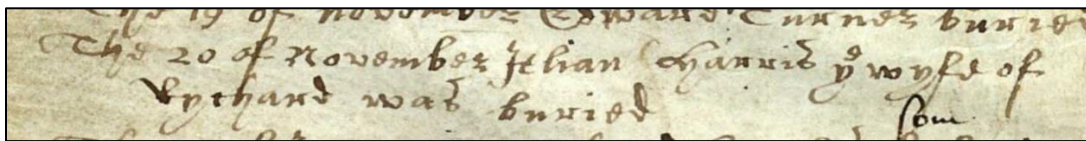 The 19 of November Edward Turner buried
The 20 of November Jelian Harris yͤ wyfe of
Rychard was buried